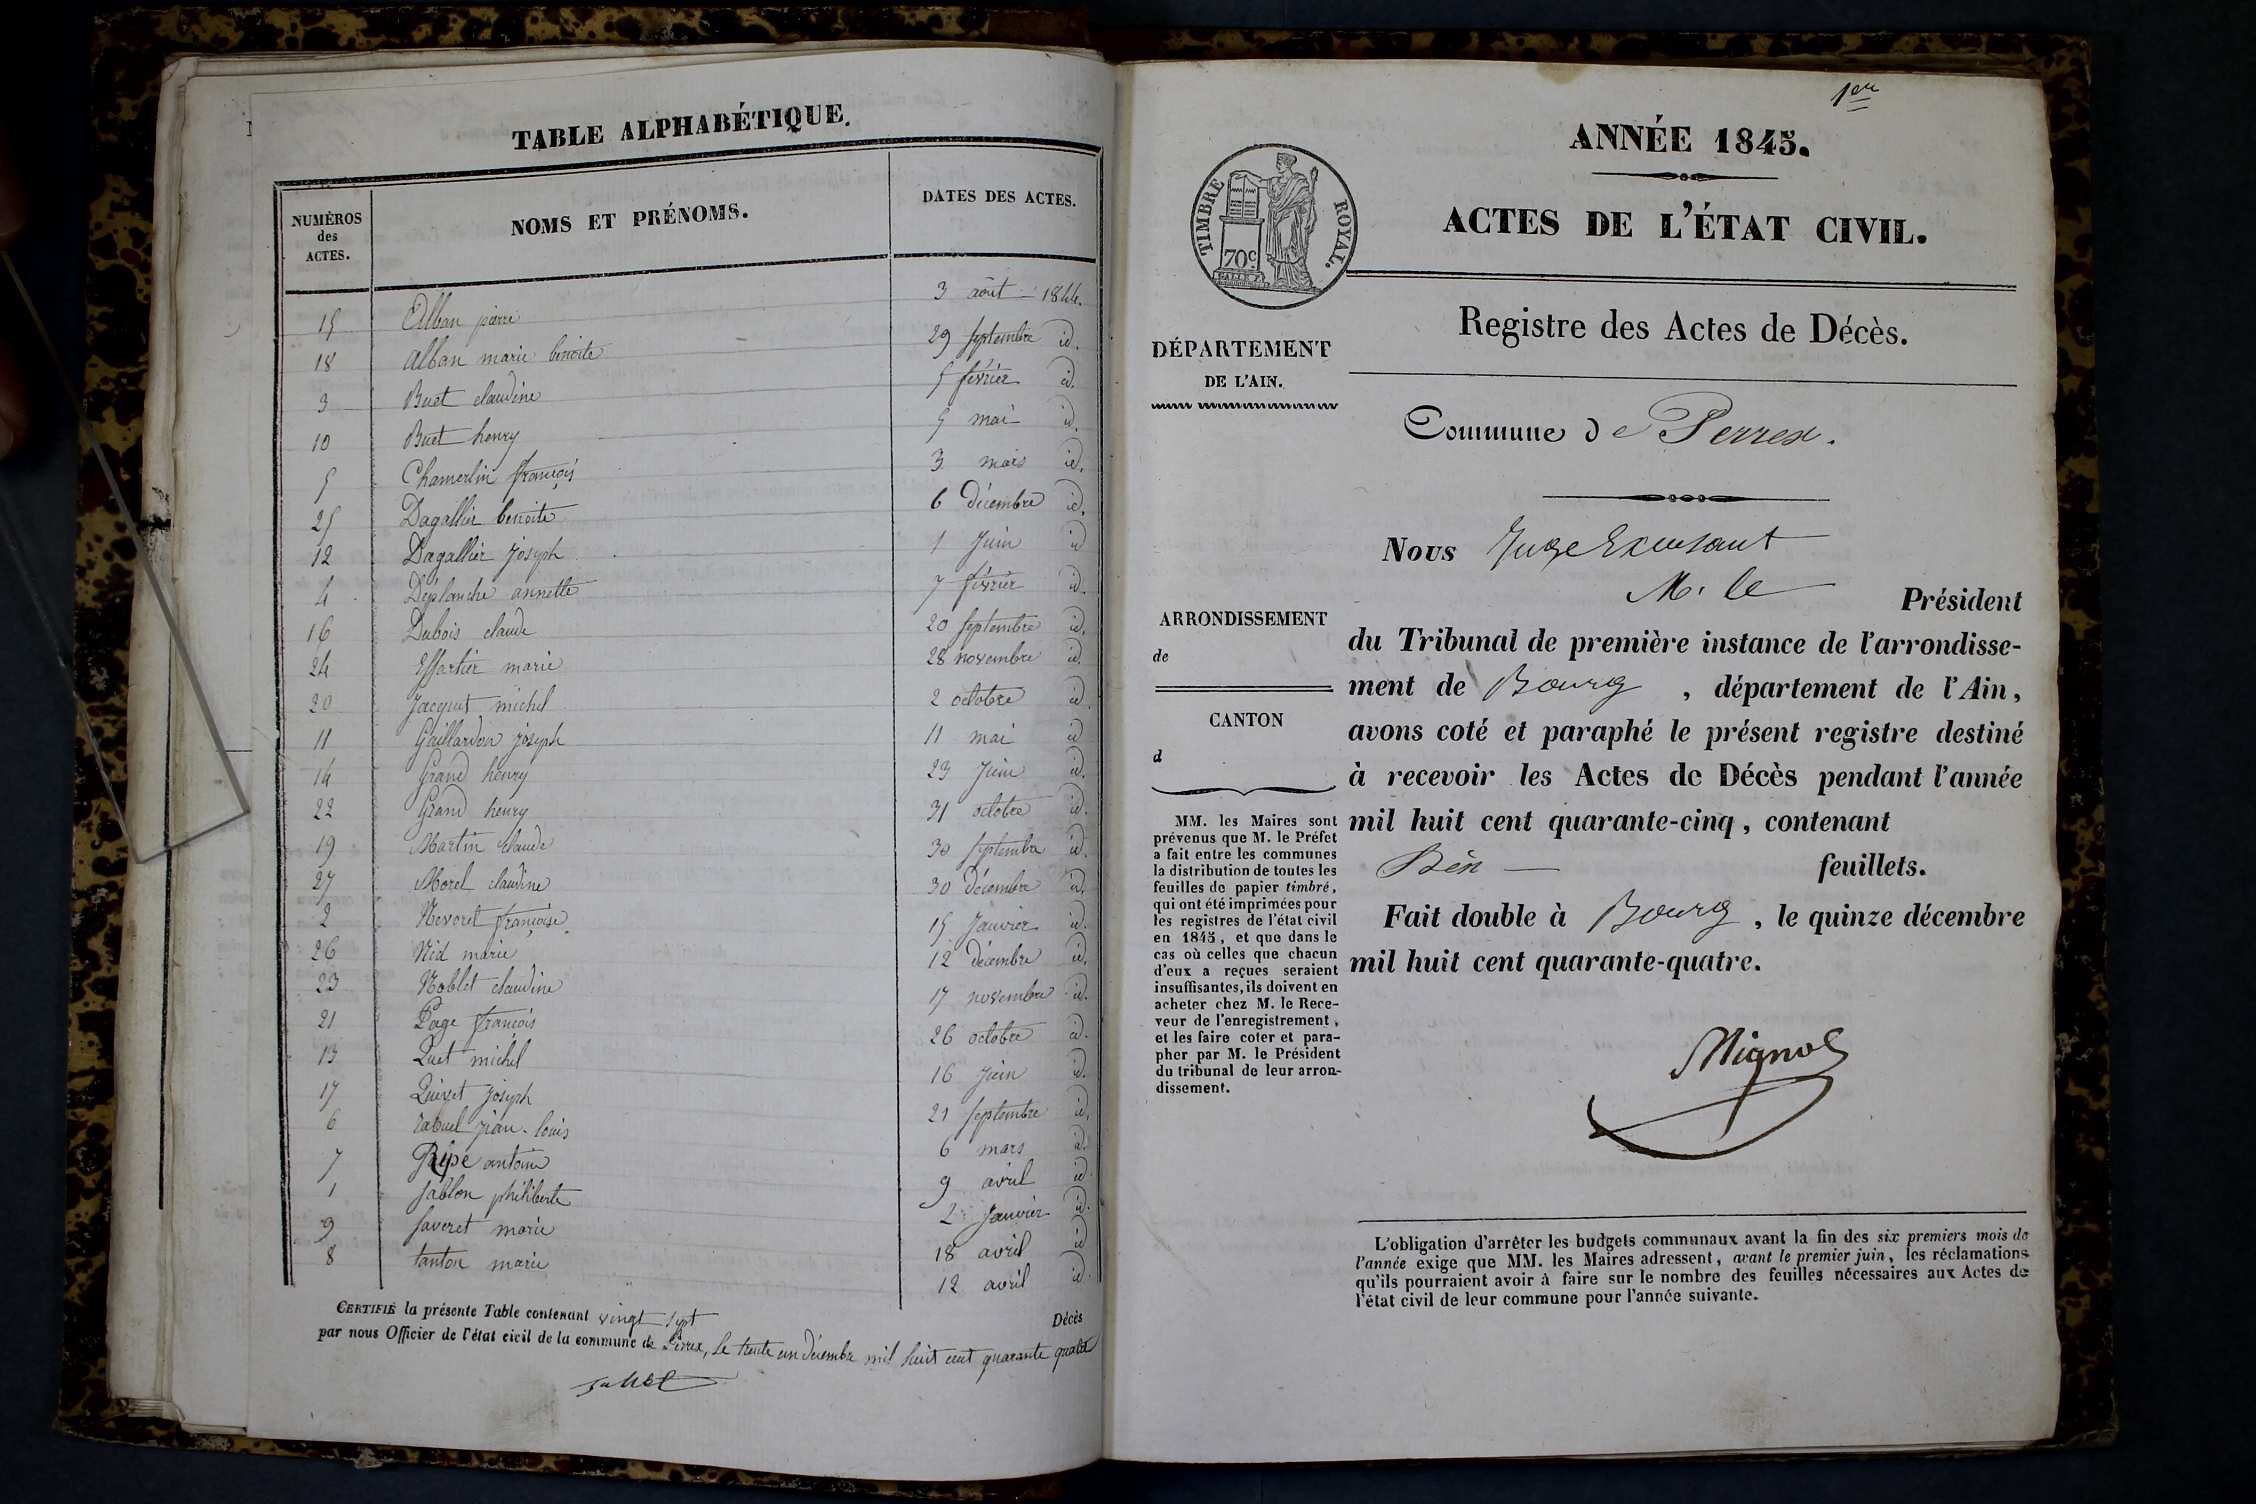 TABLE ALPHABÉTIQUE.
NUMÉROS des ACTES. NOMS ET PRÉNOMS. DATES DES ACTES.
15 Alban pierre 3 août 1844.
18 alban marie benoite 29 septembre id.
3 Buet claudine 5 février id.
10 Buet henry 5 mai id.
5 Chamerlin françois 3 mars id.
25 Dagallier benoite 6 décembre id.
12 Dagallier joseph 1 Juin id
4 Déplanche annette 7 février id.
16 Dubois claude 20 septembre id.
24 Essartier marie 28 novembre id.
20 Jacquet michel 2 octobre id.
11 Gaillardon joseph 11 mai id
14 Grand henry 23 Juin id.
22 Grand henry 31 octobre id.
19 Martin claude 30 septembre id.
27 Morel claudine 30 décembre id.
2 Nevoret françoise 15 Janvier id.
26 Nid marie 12 décembre id.
23 Noblet claudine 17 novembre id.
21 Page françois 26 octobre id.
13 Quet michel 16 Juin id.
17 Quivet joseph 21 septembre id.
6 rabuel jean-louis 6 mars id.
7 antoine 9 avril id
1 Sablon philiberte 2 Janvier id.
9 Saveret marie 18 avril id
8 tanton marie 12 avril id.
CERTIFIÉ la présente Table contenant vingt sept Décès
par nous Officier de l'état civil de la commune de Perrex, le trente un décembre mil huit cent quarante quatre
1er
ANNÉE 1845.
ACTES DE L'ÉTAT CIVIL.
TIMBRE ROYAL.
70c
Registre des Actes de Décès.
DÉPARTEMENT
DE L'AIN.
Commune de Perrex.
Nous Juge Excusant
M. le Président
ARRONDISSEMENT
de
CANTON
d
du Tribunal de première instance de l'arrondisse-
ment de Bourg, département de l'Ain,
avons coté et paraphé le présent registre destiné
à recevoir les Actes de Décès pendant l'année
mil huit cent quarante-cinq, contenant
feuillets.
Fait double à Bourg, le quinze décembre
mil huit cent quarante-quatre.
MM. les Maires sont
prévenus que M. le Préfet
a fait entre les communes
la distribution de toutes les
feuilles de papier timbré,
qui ont été imprimées pour
les registres de l'état civil
en 1845, et que dans le
cas où celles que chacun
d'eux a reçues seraient
insuffisantes, ils doivent en
acheter chez M. le Rece-
veur de l'enregistrement,
et les faire coter et para-
pher par M. le Président
du tribunal de leur arron-
dissement.
Mignot
L'obligation d'arrêter les budgets communaux avant la fin des six premiers mois de
l'année exige que MM. les Maires adressent, avant le premier juin, les réclamations
qu'ils pourraient avoir à faire sur le nombre des feuilles nécessaires aux Actes de
l'état civil de leur commune pour l'année suivante.